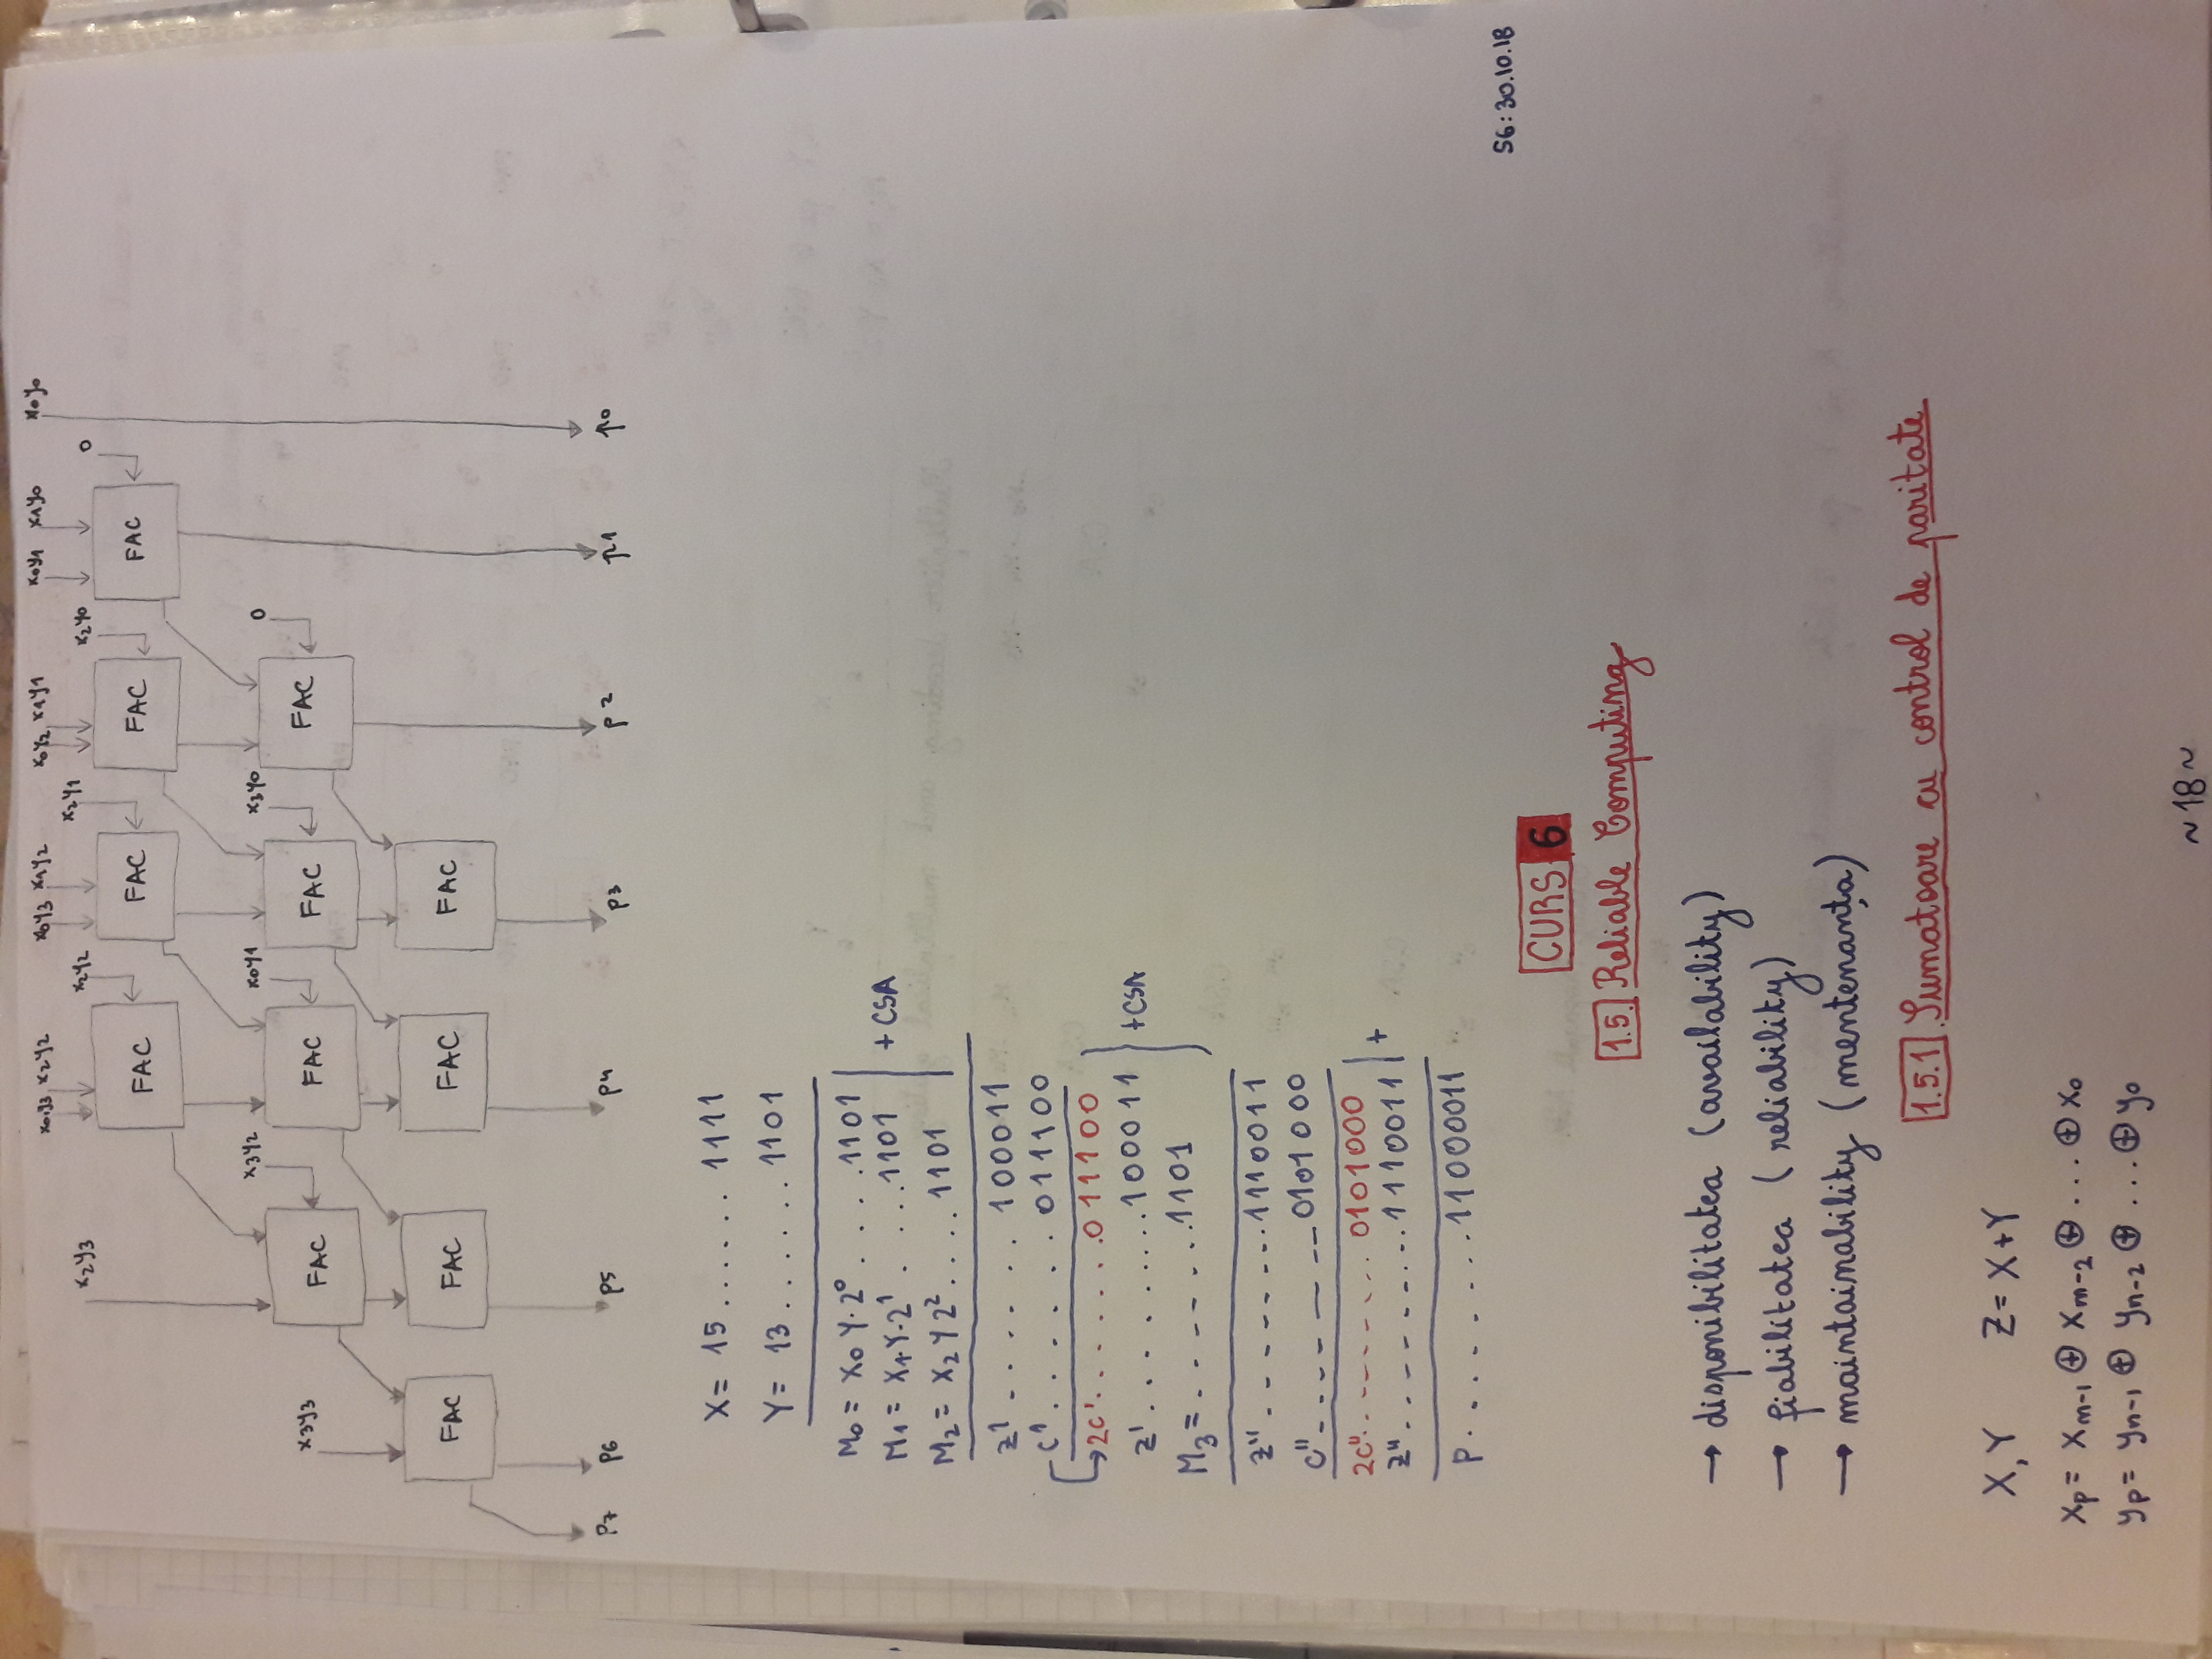 x0y3 x2y2 x0y3 x1y2 x0y2 x1y1 x0y1 x1y0 x0y0
x2y3 x2y2 x2y1 x2y0 0
FAC FAC FAC FAC
x3y2 x0y1 x3y0 0
x3y3 FAC FAC FAC FAC
FAC FAC FAC FAC
p7 p6 p5 p4 p3 p2 p1 p0
X= 15 . . . . . . 1111
Y= 13 . . . . . . 1101
M₀ = x₀ Y·2⁰ . . . . .1101
M₁ = x₁ Y·2¹ . . . .1101 + CSA
M₂ = x₂ Y 2² . . . . 1101
z' . . . . . . 100011
c' . . . . . . . 011100
2c' . . . . . . . .011100
z' . . . . . . . . . .100011 +CSA
M₃ = . - - - - . .1101
z'' . - - - - - . . .1110011
c'' - . . - - - - --0101000
2c'' . . - - - - . . . 0101000
z'' . . - - - - - . . .1110011 +
P . . . . . . . . .11000011
S6: 30.10.18
CURS 6
1.5. Reliable Computing
→ disponibilitatea (availability)
→ fiabilitatea (reliability)
→ maintainability (mentenanța)
1.5.1. Sumatoare cu control de paritate
X, Y Z= X+Y
xₚ= xₘ₋₁ ⊕ xₘ₋₂ ⊕ ... ⊕ x₀
yₚ= yₙ₋₁ ⊕ yₙ₋₂ ⊕ ... ⊕ y₀
~18~